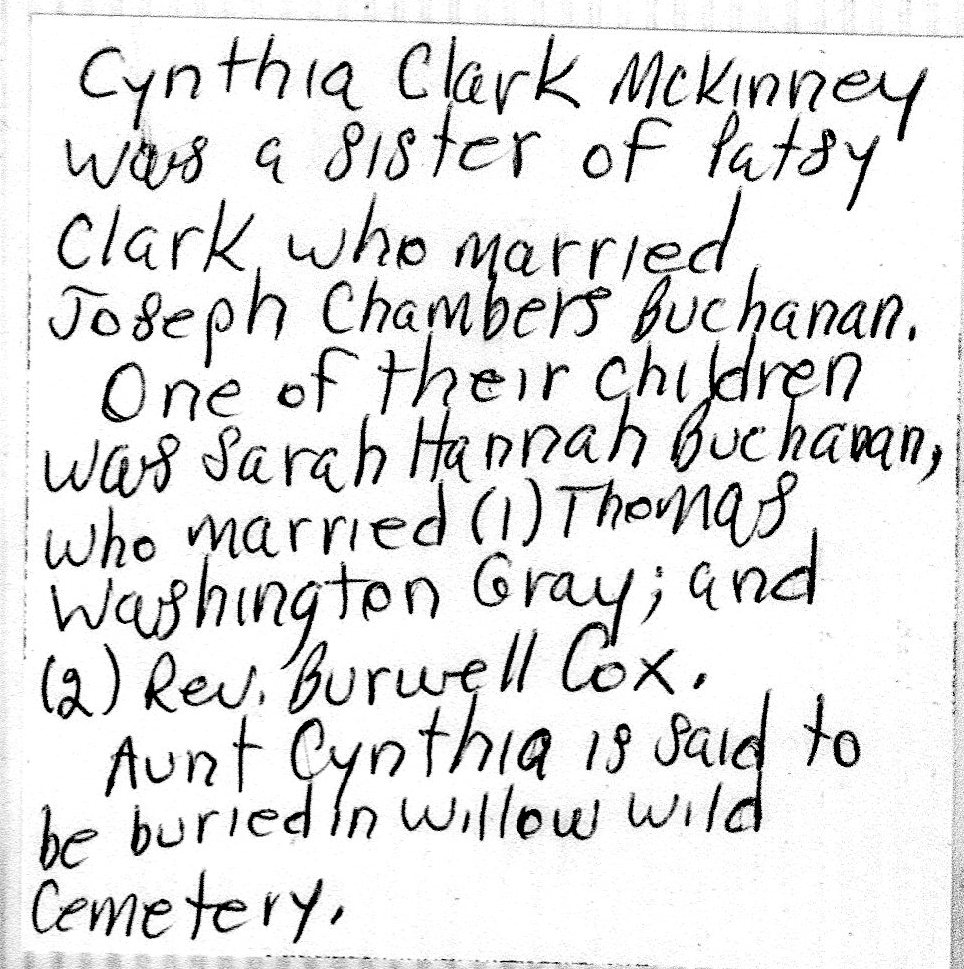 Cynthia Clark McKinney
was a sister of Patsy
Clark who married
Joseph Chambers Buchanan.
One of their children
was Sarah Hannah Buchanan,
who married (1) Thomas
Washington Gray; and
(2) Rev. Burwell Cox.
Aunt Cynthia is said to
be buried in Willow Wild
Cemetery.